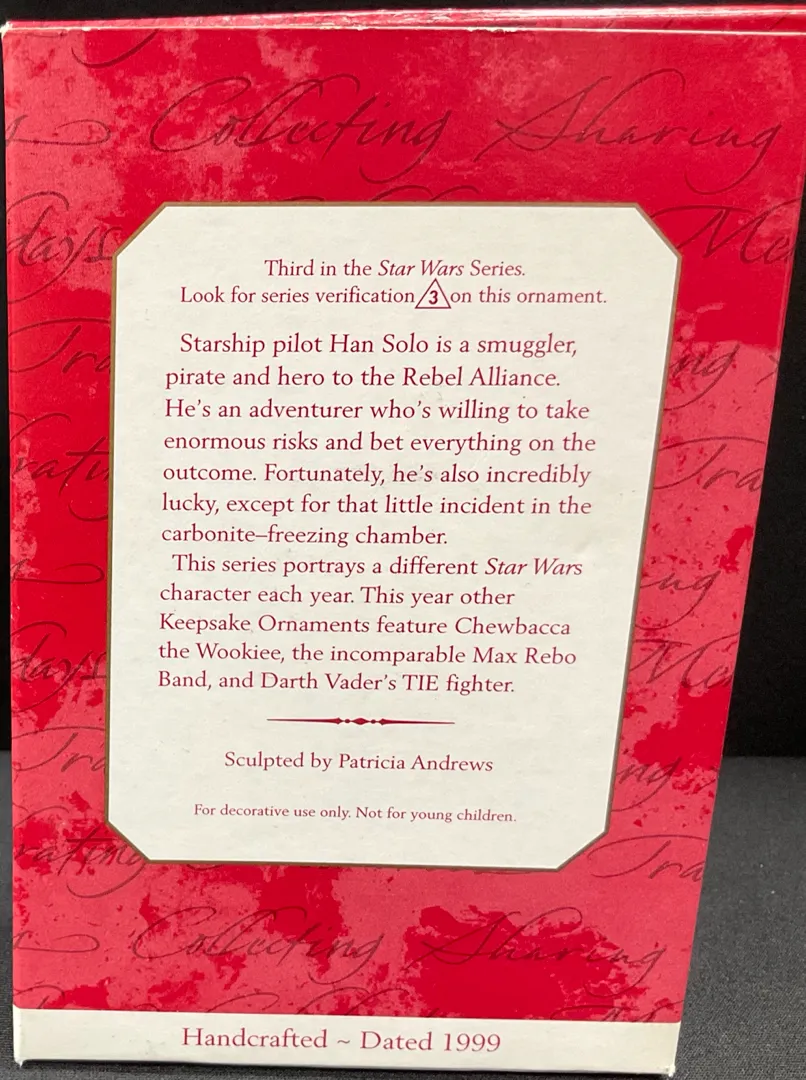 Collecting Sharing
days
Third in the Star Wars Series.
Look for series verification 3 on this ornament.
Starship pilot Han Solo is a smuggler,
pirate and hero to the Rebel Alliance.
He's an adventurer who's willing to take
enormous risks and bet everything on the
outcome. Fortunately, he's also incredibly
lucky, except for that little incident in the
carbonite–freezing chamber.
This series portrays a different Star Wars
character each year. This year other
Keepsake Ornaments feature Chewbacca
the Wookiee, the incomparable Max Rebo
Band, and Darth Vader's TIE fighter.
Sculpted by Patricia Andrews
For decorative use only. Not for young children.
Collecting Sharing
Handcrafted ~ Dated 1999